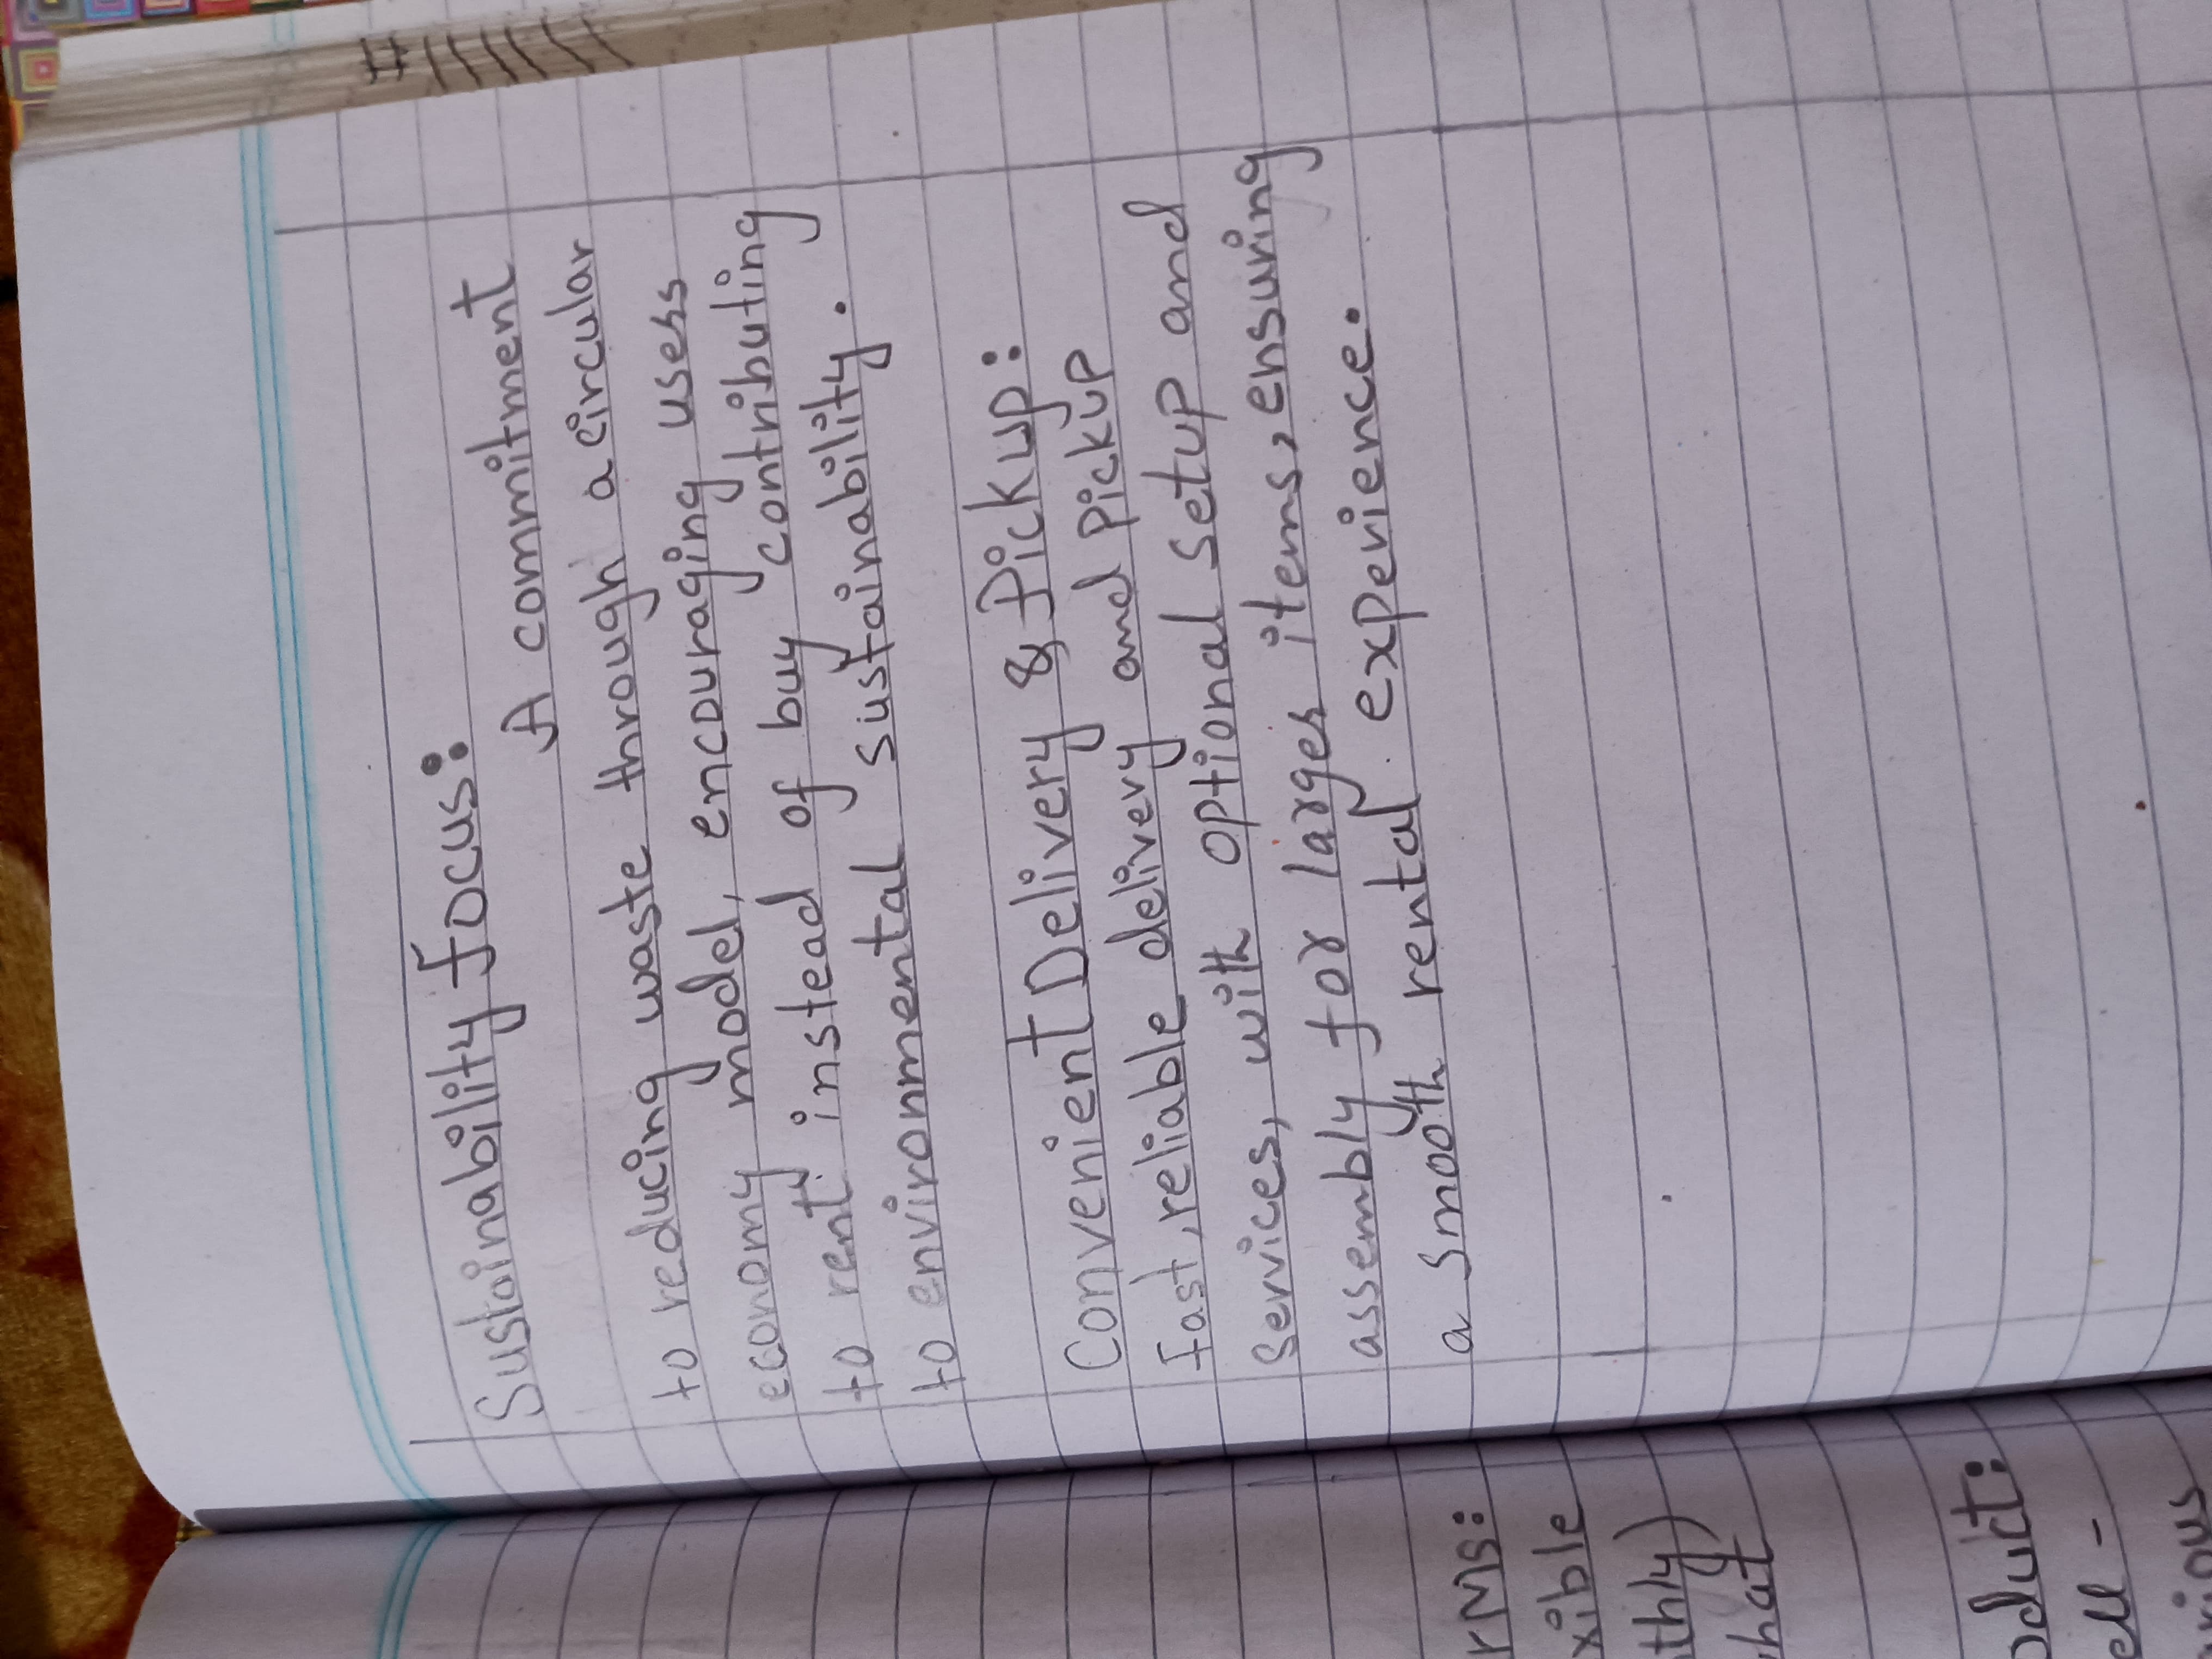 Sustainability Focus:
A commitment
to reducing waste through a circular
economy model, encouraging uses
to rent instead of buy contributing
to environmental sustainability.
Convenient Delivery & Pickup:
Fast, reliable delivery and pickup
services, with optional setup and
assembly for larges items, ensuring
a smooth rental experience.
rms:
xible
thly)
what
oduct:
ell-
rious